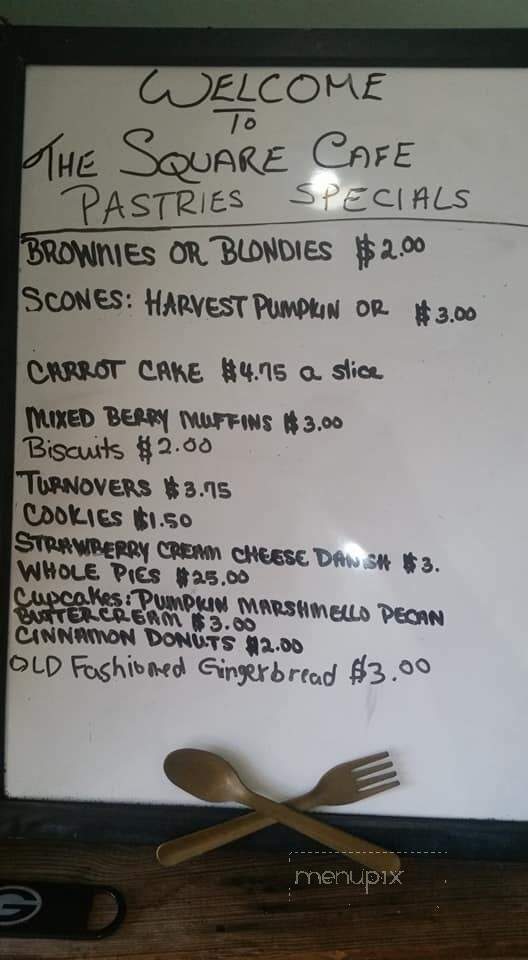 WELCOME
TO
THE SQUARE CAFE
PASTRIES SPECIALS
BROWNIES OR BLONDIES $2.00
SCONES: HARVEST PUMPKIN OR $3.00
CARROT CAKE $4.75 a slice
MIXED BERRY MUFFINS $3.00
Biscuits $2.00
TURNOVERS $3.75
COOKIES $1.50
STRAWBERRY CREAM CHEESE DANISH $3.
WHOLE PIES $25.00
Cupcakes: PUMPKIN MARSHMELLO PECAN
BUTTERCREAM $3.00
CINNAMON DONUTS $2.00
OLD Fashioned Gingerbread $3.00
menupix
G